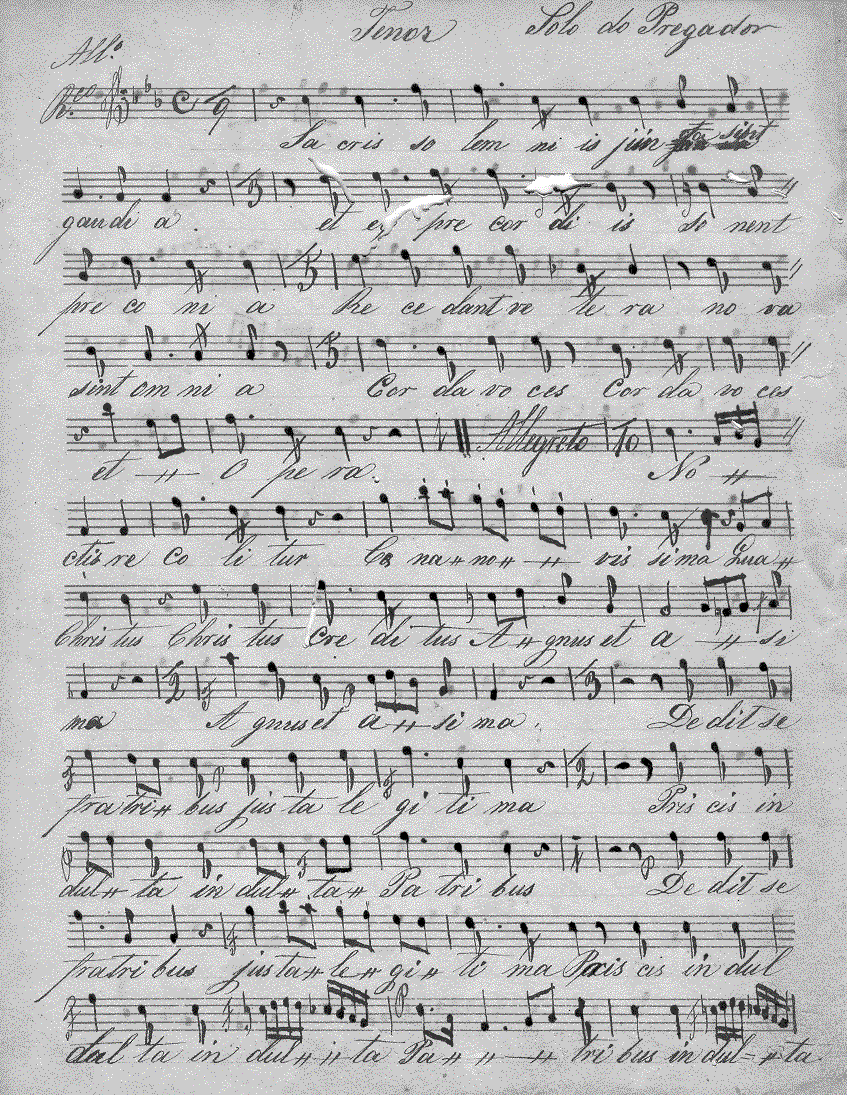 Tenor Solo do Pregador
All.º
R.co C 9
Sa cris so lem ni is jún
gaudi a . 13 et ex pre cor di is so nent
pre co ni a 15 Re ce dant ve te ra no va
sint om ni a 3 Cor da vo ces Cor da vo ces
Allegreto 10
et -〃- O pe ra. No -〃-
ctis re co li tur Cæ na〃no〃 -〃- vis si ma Qua〃
Chris tus Chris tus cre di tus A〃gnus et a -〃- si
12 P 13
ma A gnus et a〃si ma . De dit se
P 12
fratri〃bus jus ta le gi ti ma Pris cis in
P P
dul〃ta in dul〃ta〃 Pa tri bus De dit se
fratri bus jus ta〃le〃gi〃ti ma Pris cis in dul
P
dul ta in dul〃〃ta Pa〃〃-〃 tri bus in dul=〃ta.